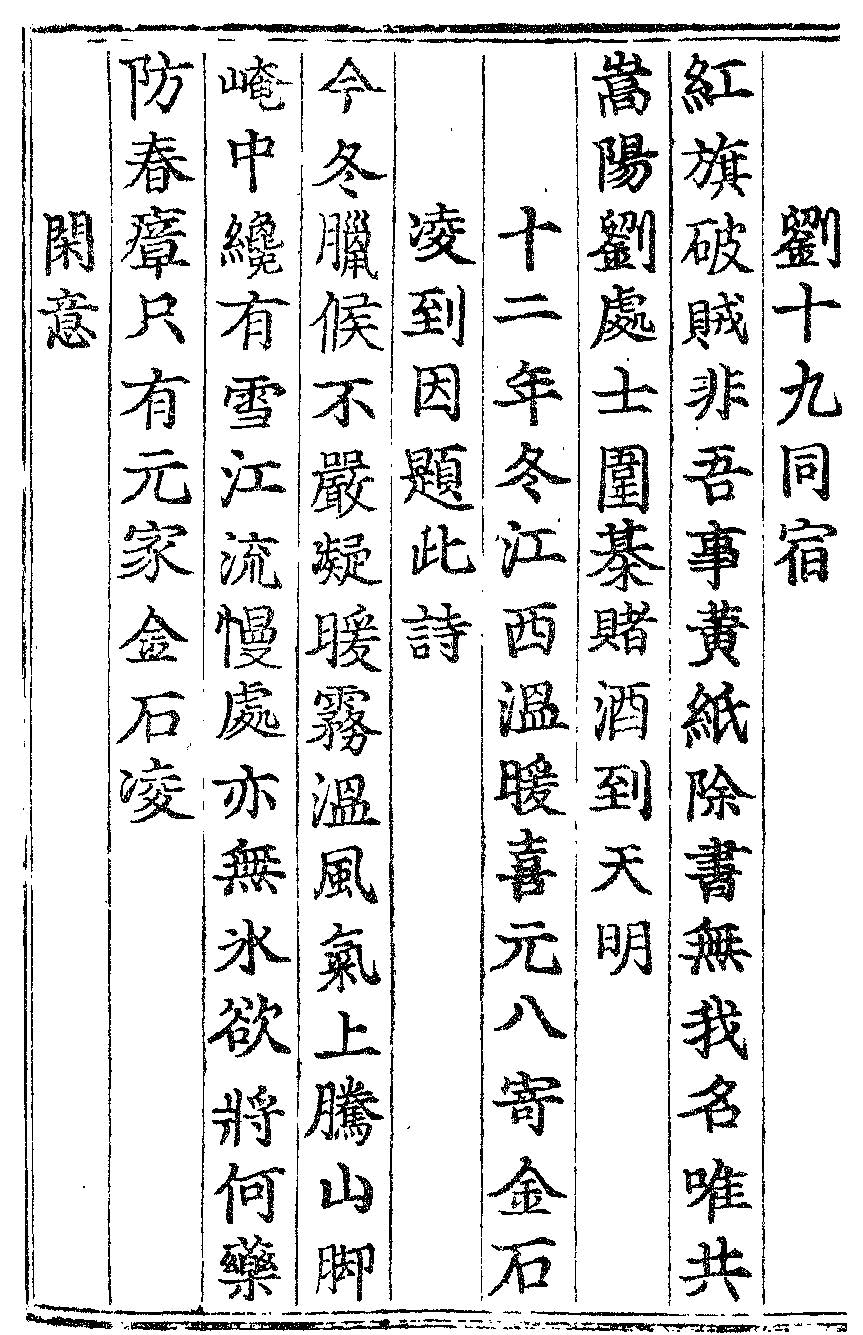 劉十九同宿
紅旗破賊非吾事黄紙除書無我名唯共
嵩陽劉處士圍棊賭酒到天明
十二年冬江西溫暖喜元八寄金石
凌到因題此詩
今冬臘候不嚴凝暖霧溫風氣上騰山脚
崦中纔有雪江流慢處亦無氷欲將何藥
防春瘴只有元家金石凌
閑意